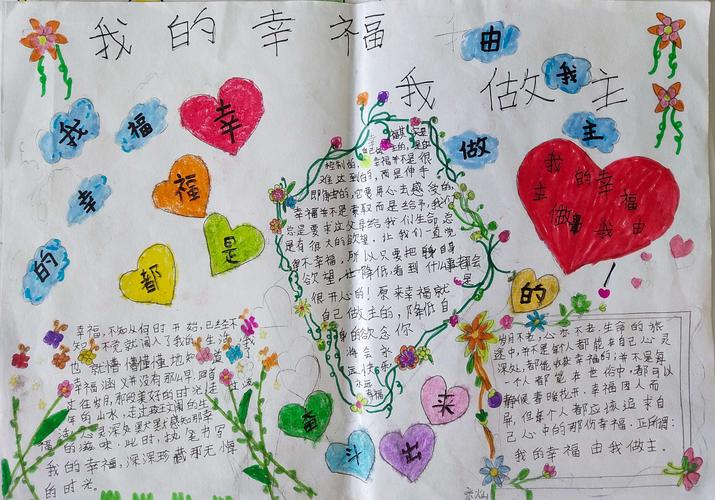 我的幸福
我做主
由
我
做
主
我
福
幸
的
幸
福
都
是
的
奋
斗
出
来
我的幸
主 福
做 我由
控制的,幸福并不是很
难达到的,而是伸手
即得到的,它需用心去感受的,
幸福并不是索取而是给予,我们
总是要求父母给我们生命总
是有很大的欲望,让我们一直觉
得不幸福,所以只要把自身
欲望 降低看到什么事都会
很开心的!原来幸福就是
自己做主的,降低自
身的欲念你
将会永
远快乐
永远
幸福
幸福,不知从何时开始,已经不
知不觉就闯入了我的生活,我
也就懵懵懂懂地知道了
幸福涵义并没有那么早,踏着
年的山水,走过
福 活,心灵深处默默感知那幸
的滋味,此时,执笔书写
我的幸福,深深珍藏那无悔
的时光。
岁月不老,心亦不老,生命的旅
途中,并不是每个人都能在自己心灵
深处,都能收获幸福的,并不是每
一个人都能在世俗中,都可以
静候春暖花开,幸福因人而
异,但每个人都应该追求自
己心中的那份幸福。正所谓:
我的幸福由我做主.